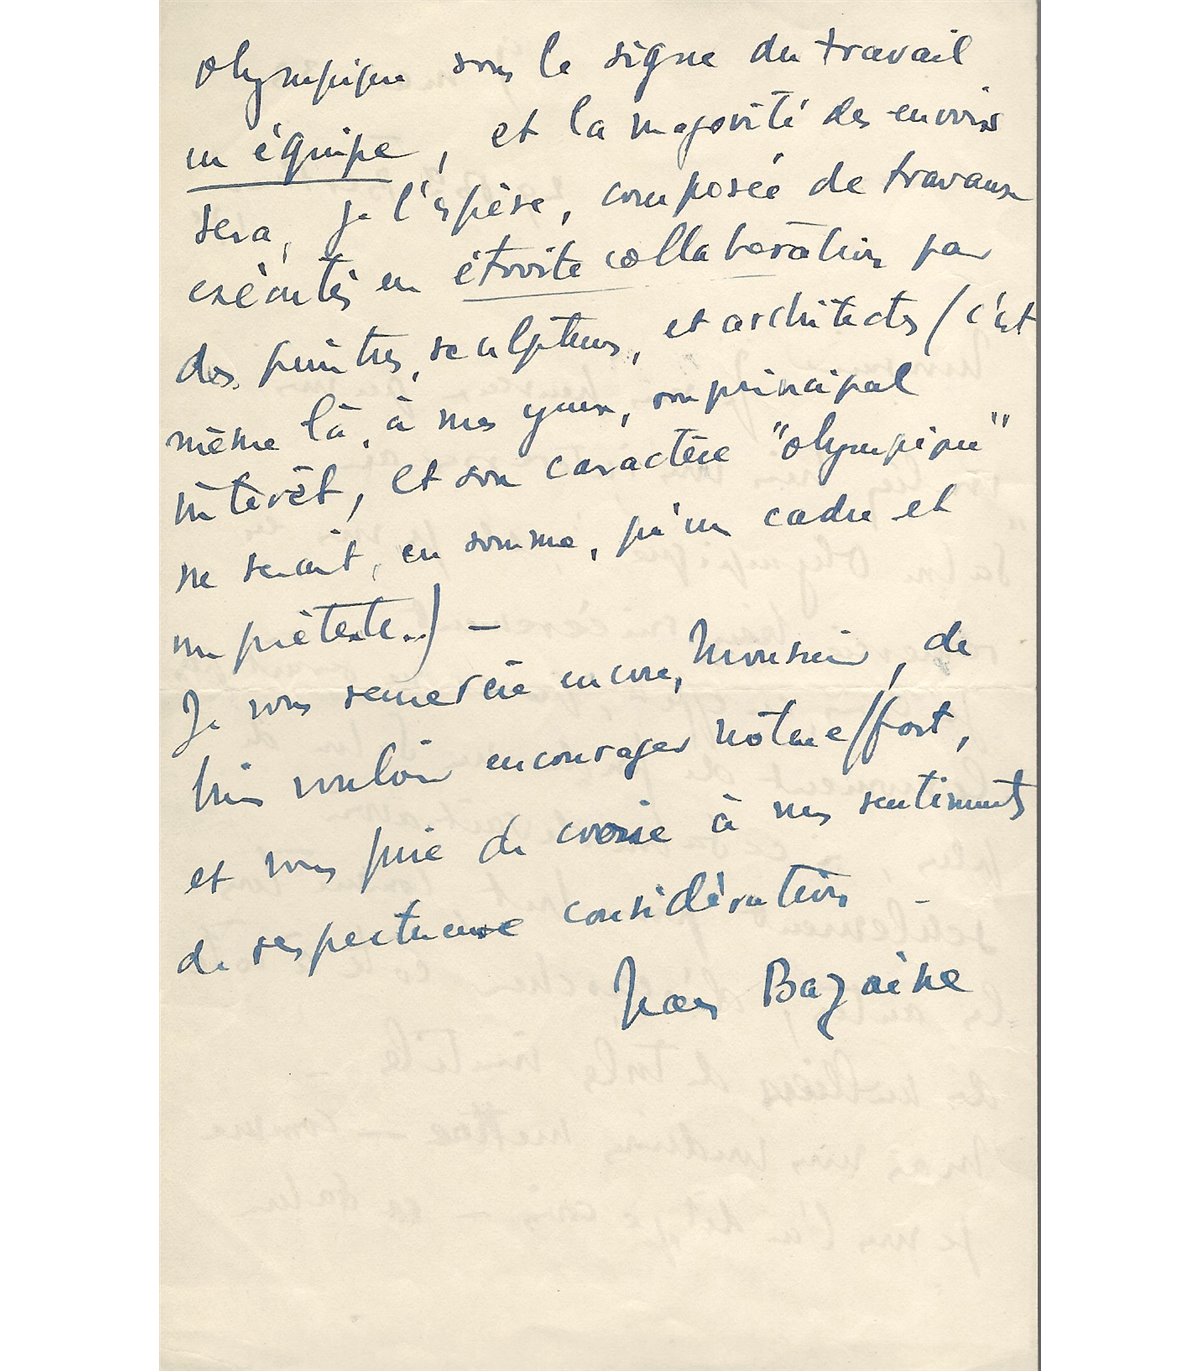 olympique sous le signe du travail
en équipe, et la majorité des envois
sera, je l'espère, composée de travaux
exécutés en étroite collaboration par
des peintres, sculpteurs, et architectes (c'est
même là, à mes yeux, son principal
intérêt, et son caractère "olympique"
ne serait, en somme, qu'un cadre et
un prétexte..) —
Je vous remercie encore, Monsieur, de
bien vouloir encourager notre effort,
et vous prie de croire à mes sentiments
de respectueuse considération -
Jean Bazaine